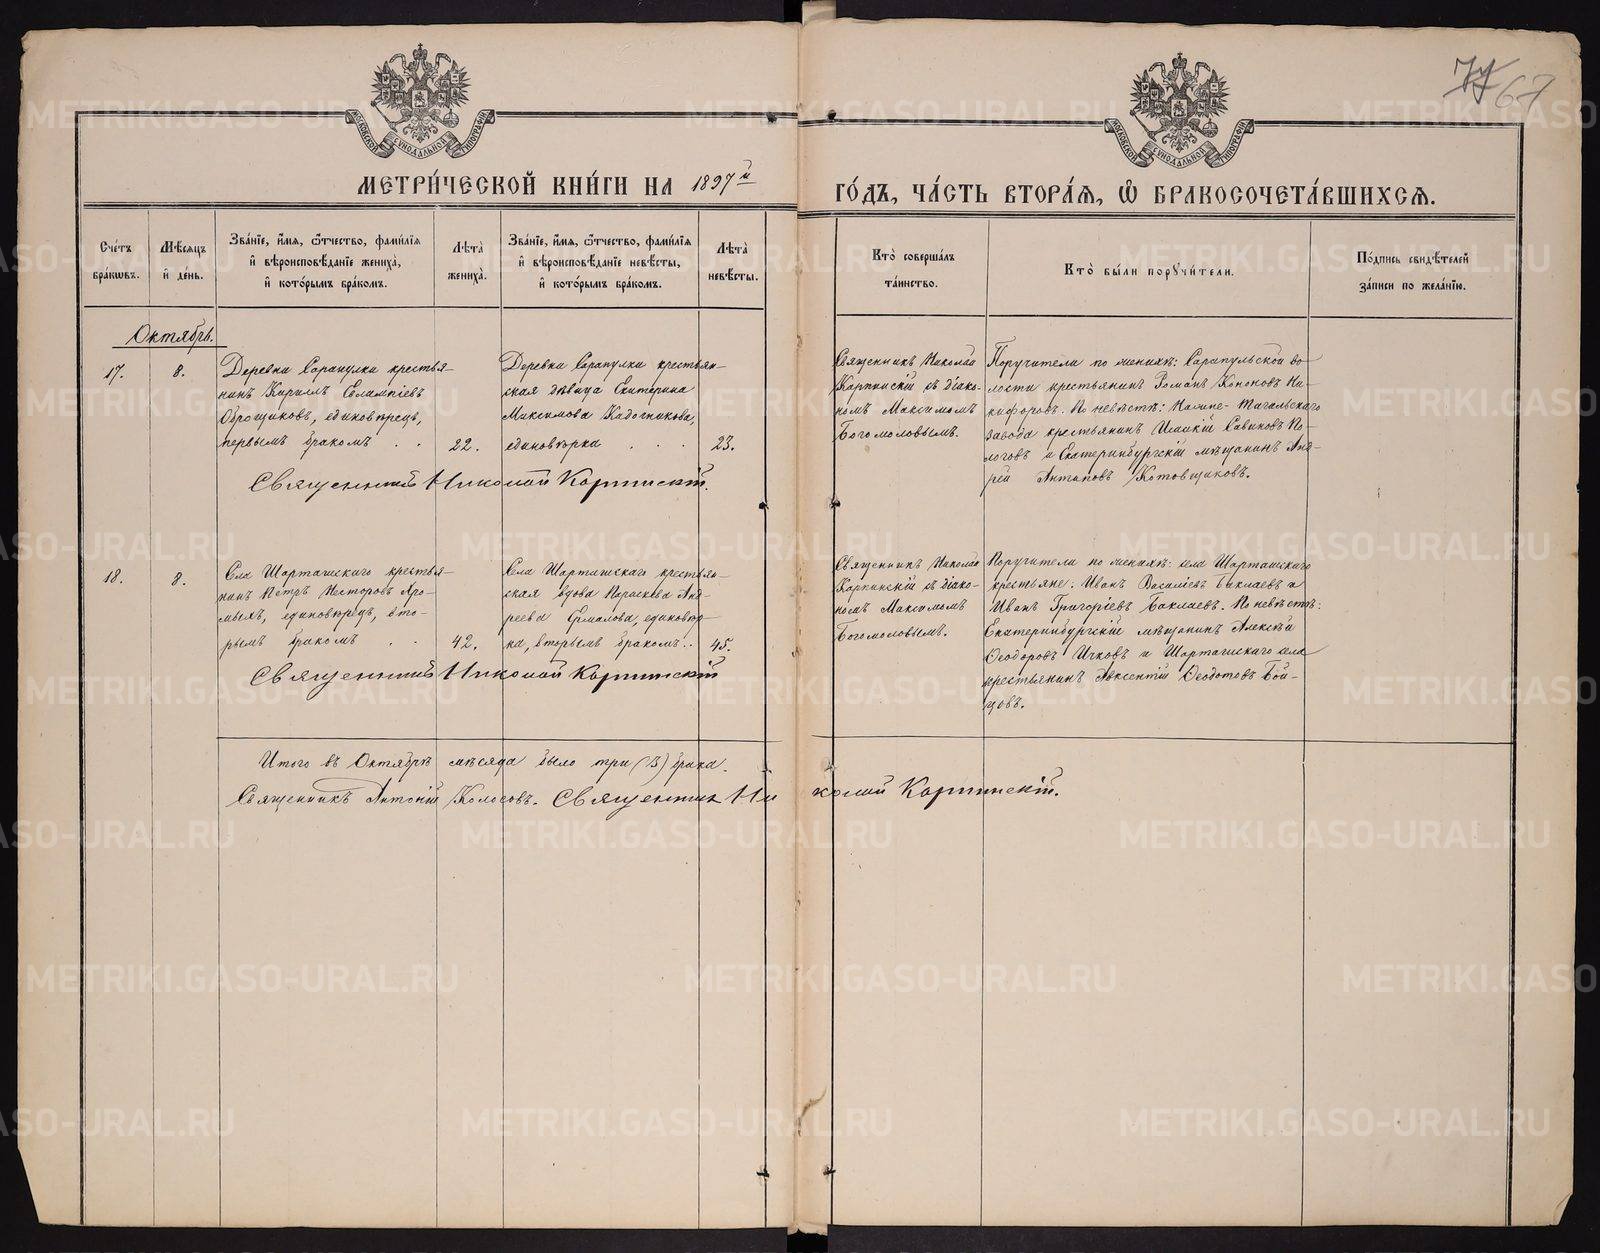 77 67
МОСКОВСКОЙ СѴНОДАЛЬНОЙ ТИПОГРАФІИ
МОСКОВСКОЙ СѴНОДАЛЬНОЙ ТИПОГРАФІИ
МЕТРИ́ЧЕСКОЙ КНИ́ГИ НА 1897й ГО́ДЪ, ЧА́СТЬ ВТОРА́Я, Ѽ БРАКОСОЧЕТА́ВШИХСЯ.
Сче́тъ
бра́кѡвъ.
Мѣ́сяцъ
и҆ де́нь.
Зва́нїе, и҆́мя, ѻ҆́тчество, фами́лїя
и҆ вѣроисповѣ́данїе жениха̀,
и҆ кото́рымъ бра́комъ.
Лѣ́та̀
жениха̀.
Зва́нїе, и҆́мя, ѻ҆́тчество, фами́лїя
и҆ вѣроисповѣ́данїе невѣ́сты,
и҆ кото́рымъ бра́комъ.
Лѣ́та̀
невѣ́сты.
Кто̀ соверша́лъ
та́инство.
Кто̀ бы́ли порꙋчи́тели.
По́дпись свидѣ́телей
за́писи по жела́нїю.
Октябрь.
17.
8.
Деревни Сарапулки крестья-
нинъ Кирилъ Евлампіевъ
Оброщиковъ, единовѣрецъ,
первымъ бракомъ . .
22.
Деревни Сарапулки крестьян-
ская дѣвица Екатерина
Максимова Кадочникова,
единовѣрка . . .
23.
Священникъ Николай
Карпинскій съ діако-
номъ Максимомъ
Богомоловымъ.
Поручители по женихѣ: Сарапульской во-
лости крестьянинъ Романъ Кононовъ Ни-
кифоровъ. По невѣстѣ: Нижне-Тагильскаго
завода крестьянинъ Исаакій Савиновъ По-
логовъ и Екатеринбургскій мѣщанинъ Анд-
рей Антиповъ Котовщиковъ.
Священникъ Николай Карпинскій.
18.
8.
Села Шарташскаго крестья-
нинъ Петръ Несторовъ Хро-
мыхъ, единовѣрецъ, вто-
рымъ бракомъ .
42.
Села Шарташскаго крестьян-
ская вдова Параскева Анд-
реева Ермакова, единовѣр-
ка, вторымъ бракомъ..
45.
Священникъ Николай
Карпинскій съ діако-
номъ Максимомъ
Богомоловымъ.
Поручители по женихѣ: села Шарташскаго
крестьяне: Иванъ Василіевъ Баклаевъ и
Иванъ Григоріевъ Баклаевъ. По невѣстѣ:
Екатеринбургскій мѣщанинъ Алексѣй
Ѳеодоровъ Ичковъ и Шарташскаго села
крестьянинъ Авксентій Ѳеодотовъ Бой-
цовъ.
Священникъ Николай Карпинскій
Итого въ Октябрѣ мѣсяцѣ было три (3) брака.
Священникъ Антоній Колосовъ. Священникъ Николай Карпинскій.
METRIKI.GASO-URAL.RU